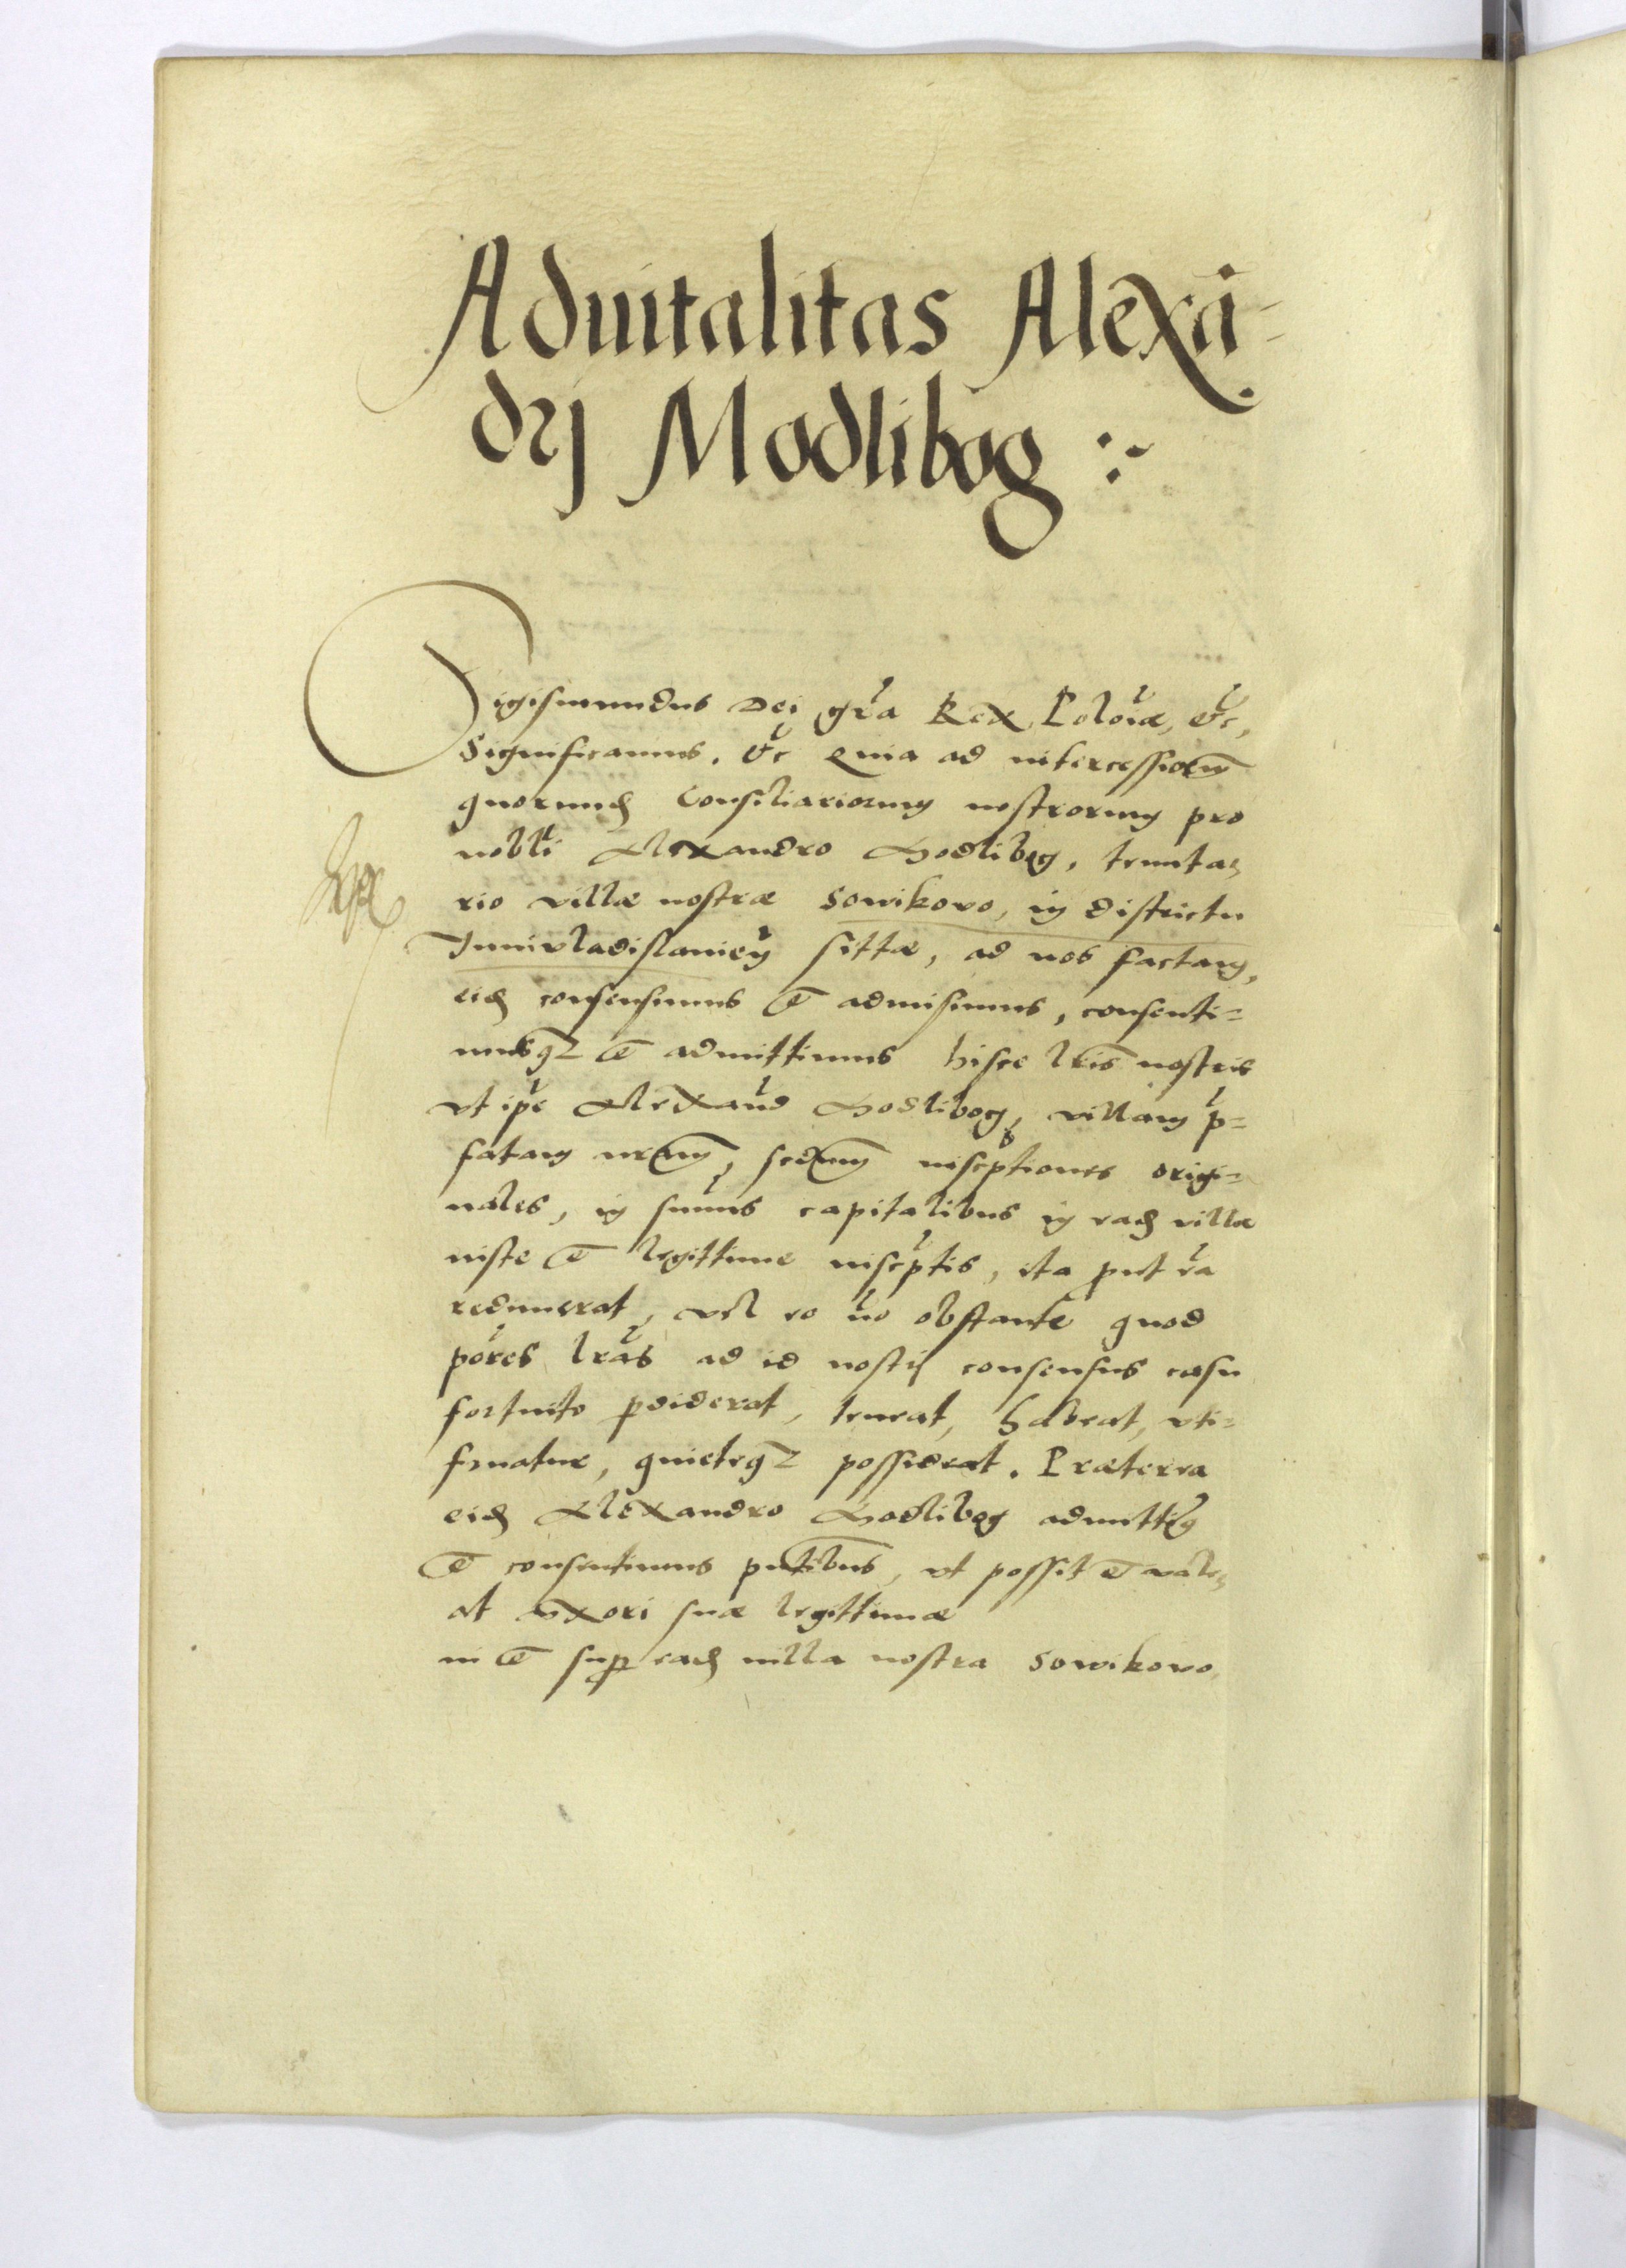 Aduitalitas Alexā-
drj Modlibog
Sigismundus Dei gra Rex Poloiæ, etc,
Significamus. etc Quia ad intercessionem
quorumd Consiliariorum nostrorum pro
nobli Alexandro Modlibog, tenuta-
rio villæ nostræ Sowikovo, in districtu
Juniuladislauien sittæ, ad nos factam,
eid consensimus et admisimus, consenti=
musq et admittimus hisce lris nostris
vt ipe Alexand Modlibog, villam p=
fatam nram, scdum inscptiones origi=
nales, in sumis capitalibus in ead villa
iuste et legittime inscptis, ita put ea
redimerat, vel eo no obstante quod
pores lras ad id nostri consensus casu
fortuito pdiderat, teneat, habeat, vti=
fruatur, quieteq possideat. Præterea
eid Alexandro Modlibog admittim
et consentimus pntibus, vt possit et vale-
at vxori suæ legittimæ
in et sup ead villa nostra Sowikovo,